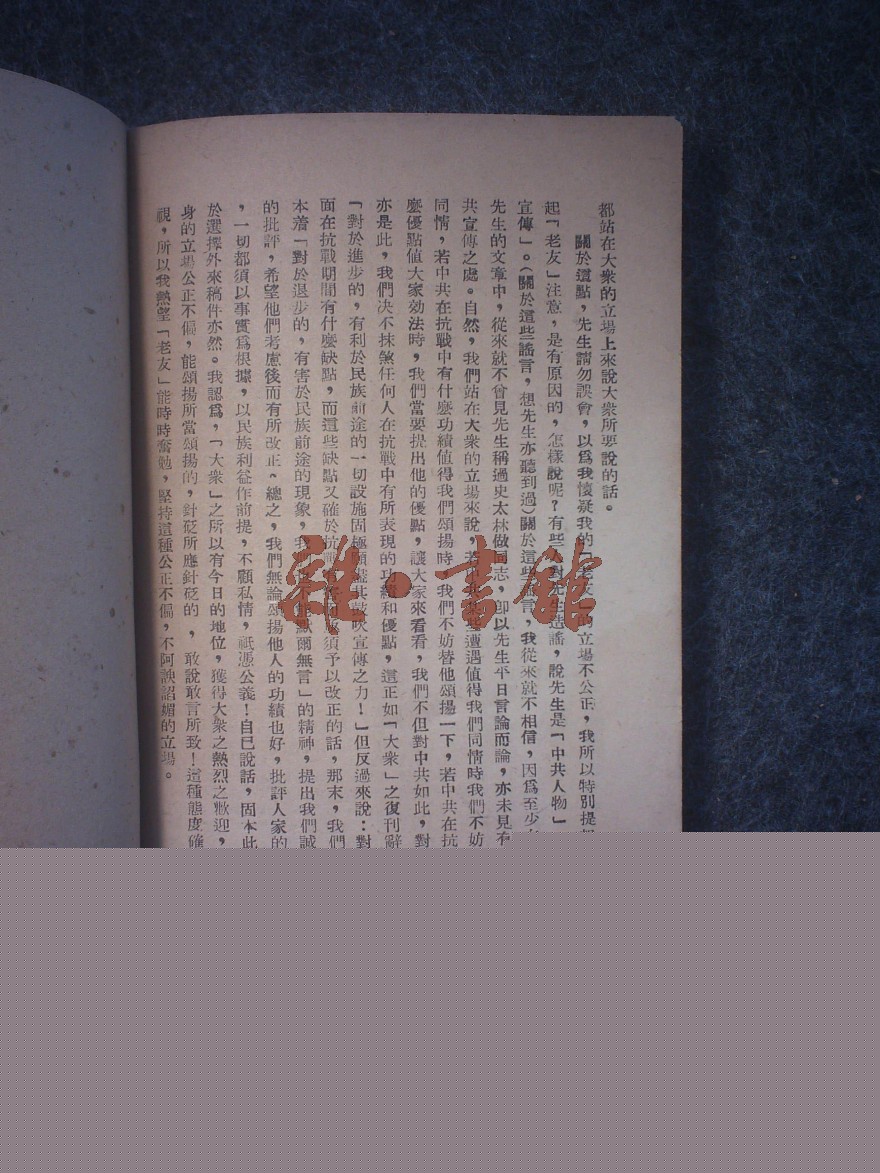 都站在大衆的立場上來說大衆所要說的話。
關於這點，先生請勿誤會，以爲我懷疑我的「老友」的立場不公正，我所以特別提
起「老友」注意，是有原因的，怎樣說呢？有些人對先生造謠，說先生是「中共人物」
宣傳」。（關於這些謠言，想先生亦聽到過）關於這些謠言，我從來就不相信，因爲至少
先生的文章中，從來就不會見先生稱過史太林做同志，卽以先生平日言論而論，亦未見有
共宣傳之處。自然，我們站在大衆的立場來說，若中共有某些遭遇值得我們同情時我們不妨
同情，若中共在抗戰中有什麼功績值得我們頌揚時，我們不妨替他頌揚一下，若中共在抗
麼優點值大家効法時，我們當要提出他的優點，讓大家來看看，我們不但對中共如此，對
亦是此，我們决不抹煞任何人在抗戰中有所表現的功績和優點，這正如「大衆」之復刊辭
「對於進步的，有利於民族前途的一切設施固極願盡其鼓吹宣傳之力！」但反過來說：對
面在抗戰期間有什麼缺點，而這些缺點又確於抗戰有害而應須予以改正的話，那末，我們
本着「對於退步的，有害於民族前途的現象，我們也不能默爾無言」的精神，提出我們誠
的批評，希望他們考慮後而有所改正，總之，我們無論頌揚他人的功績也好，批評人家的
，一切都須以事實爲根據，以民族利益作前提，不顧私情，祇憑公義！自已說話，固本此
於選擇外來稿件亦然。我認爲，「大衆」之所以有今日的地位，獲得大衆之熱烈之歡迎，
身的立場公正不偏，能頌揚所當頌揚的，針砭所應針砭的，敢說敢言所致！這種態度確
視，所以我熱望「老友」能時時奮勉，堅持這種公正不偏，不阿諛諂媚的立場。
雜·書館